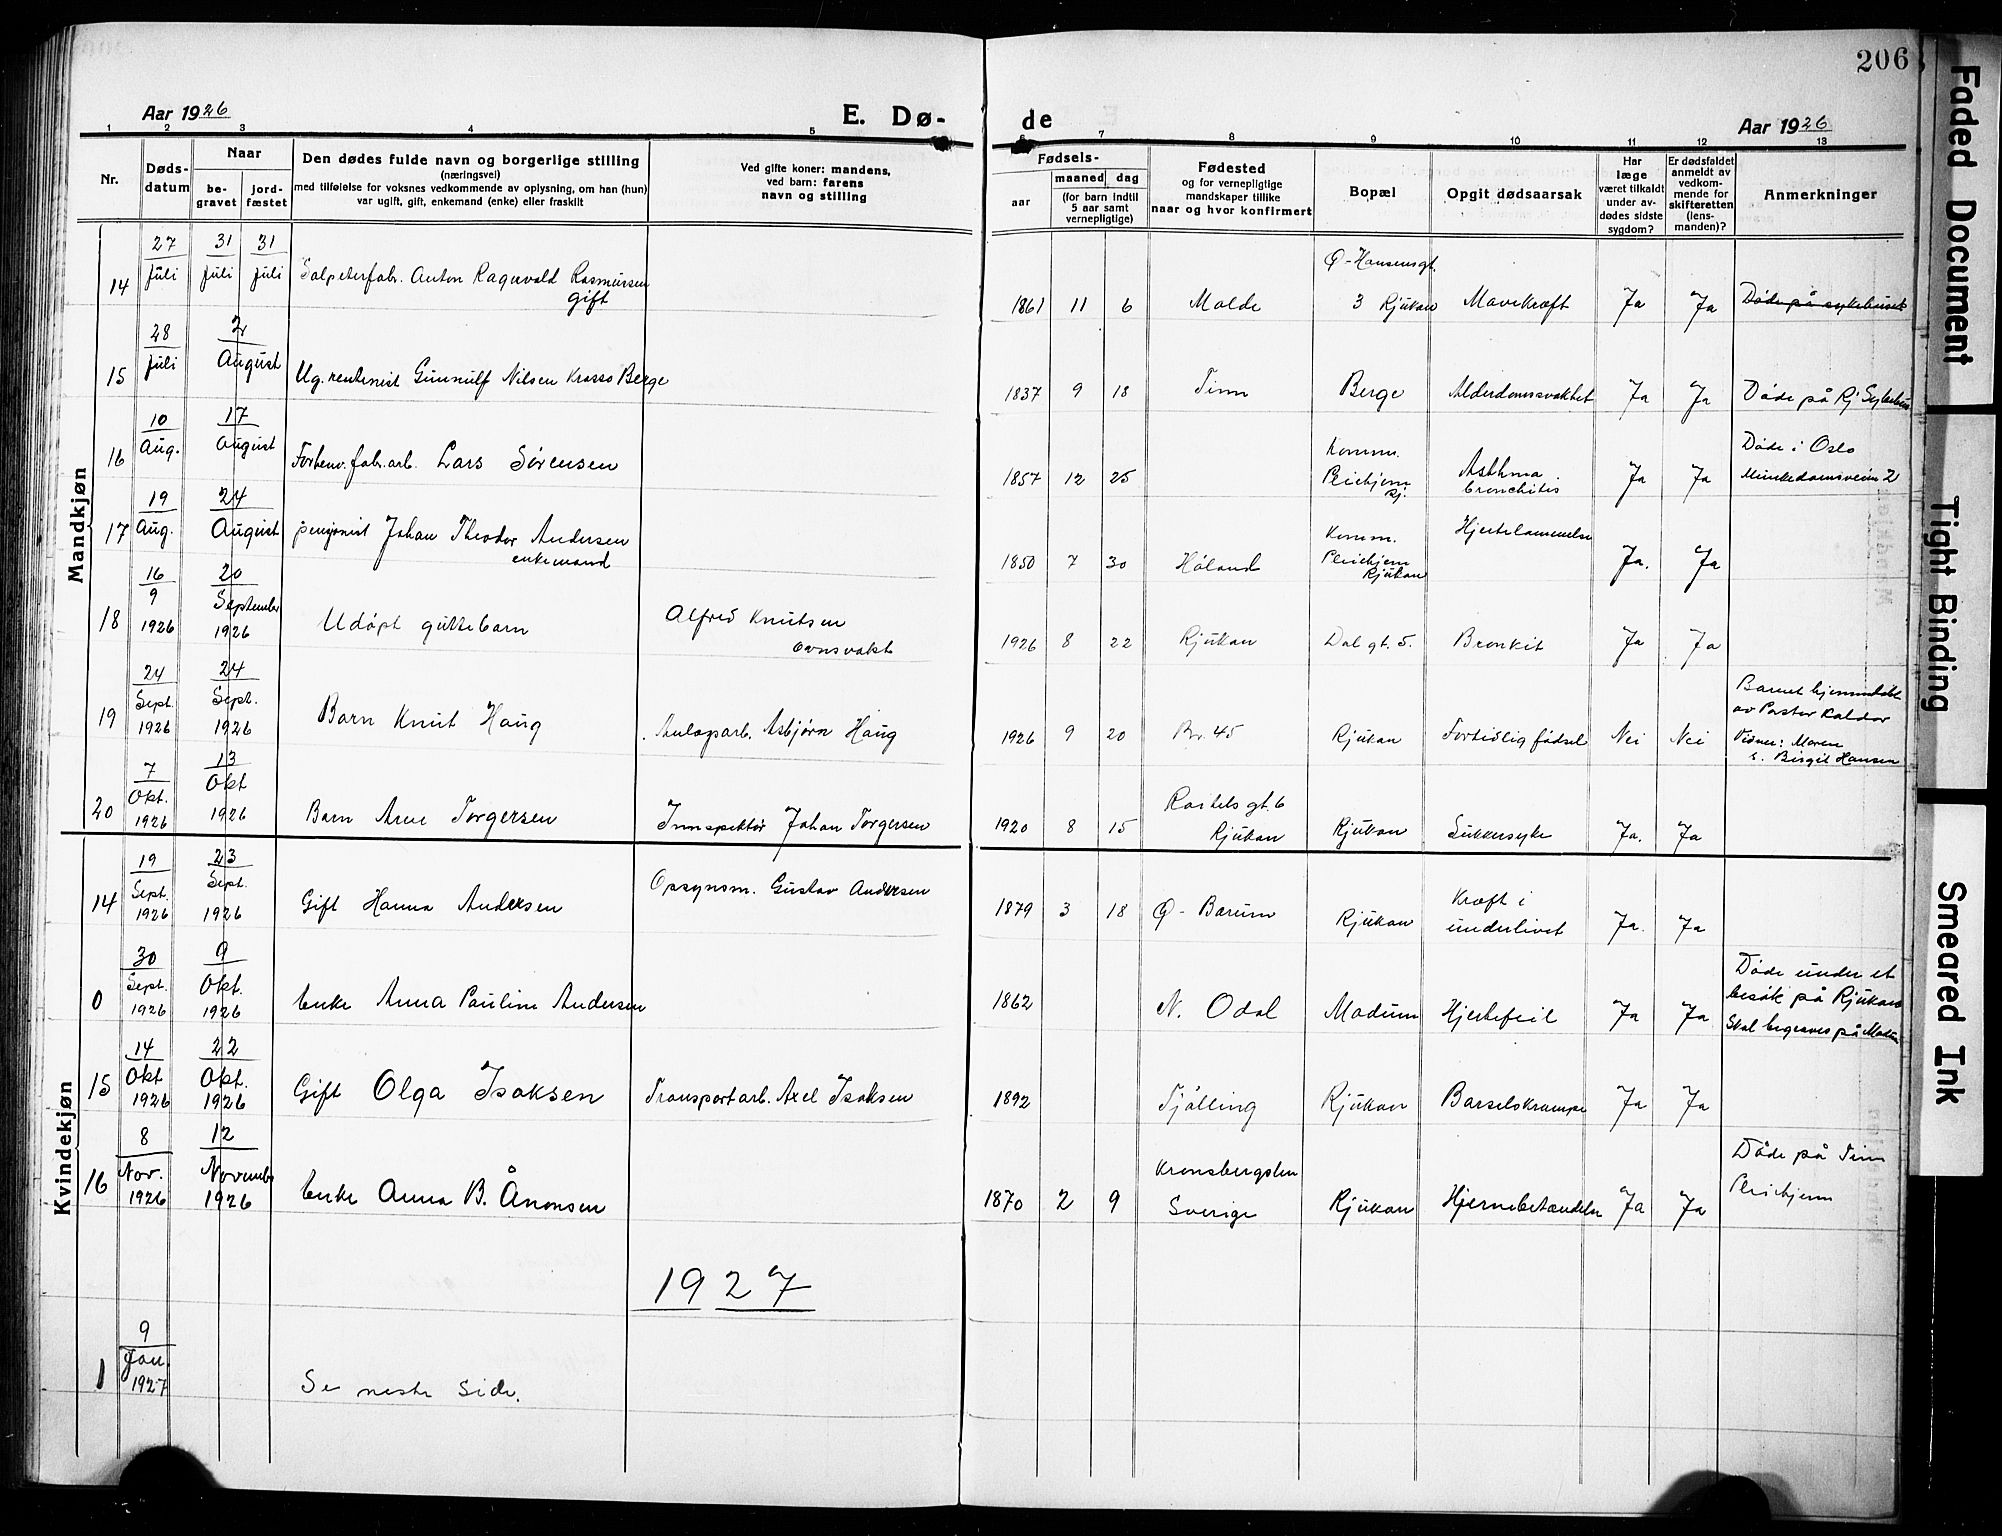 206
Aar 1926
E. Dø-
de
Aar 1926
1 2 3 4 5 6 7 8 9 10 11 12 13
Nr.
Døds-
datum
Naar
be-
gravet
jord-
fæstet
Den dødes fulde navn og borgerlige stilling
(næringsvei)
med tilføielse for voksnes vedkommende av oplysning, om han (hun)
var ugift, gift, enkemand (enke) eller fraskilt
Ved gifte koner: mandens,
ved barn: farens
navn og stilling
Fødsels-
aar
maaned dag
(for barn indtil
5 aar samt
vernepligtige)
Fødested
og for vernepligtige
mandskaper tillike
naar og hvor konfirmert
Bopæl
Opgit dødsaarsak
Har
læge
været tilkaldt
under av-
dødes sidste
sygdom?
Er dødsfaldet
anmeldt av
vedkom-
mende for
skifteretten
(lens-
manden)?
Anmerkninger
Mandkjøn
14 27 Juli 31 Juli 31 Juli Salpeterfabr. Anton Ragnvald Rasmussen
gift
1861 11 6 Molde Ø-Hansensgt.
3 Rjukan Mavekræft Ja Ja Døde på sykehuset
15 28 Juli 2 August Ug. rentenist Gunnulf Nilsen Krosso Berge
1837 9 18 Tinn Berge Alderdomssvakhet Ja Ja Døde på Rj Sykehus
16 10 Aug. 17 August Forhenv. fabr. arb. Lars Sørensen
1857 12 25 Komm.
Pleiehjem
Rj. Asthma
bronchitis Ja Ja Døde i Oslo
Munkedamsveien 2
17 19 Aug. 24 August pensjonist Johan Theodor Andersen
enkemand
1850 7 30 Høland Komm.
Pleiehjem
Rjukan Hjertelammelse Ja. Ja
18 16 9 1926 20 September 1926 Udøpt guttebarn Alfred Knutsen
Ovnsvakt
1926 8 22 Rjukan Dal gt. 5. Bronkit Ja Ja
19 24 Sept. 1926 24 Sept. 1926 Barn Knut Haug Anlagsarb. Asbjørn Haug
1926 9 20 Br. 45 Rjukan Fortidlig fødsel Nei Nei Barnet hjemmedøbt
av Pastor Kaldor
Vidner: Maren
Birgit Hansen
20 7 Okt. 1926 13 Okt 1926 Barn Arne Torgersen Innspektør Johan Torgersen
1920 8 15 gt. 6
Rjukan Rjukan Sukkersyke Ja. Ja
Kvindekjøn
14 19 Sept. 1926 23 Sept. 1926 Gift Hanna Andersen Opsynsm. Gustav Andersen
1879 3 18 Ø- Bærum Rjukan Kræft i
underlivet Ja. Ja
0 30 Sept. 1926 9 Okt. 1926 Enke Anna Pauline Andersen
1862 N. Odal Modum Hjertefeil Ja Ja Døde under et
besøk på Rjukan
Skal begraves på Modum
15 14 Okt 1926 22 Okt. 1926 Gift Olga Isaksen Transportarb. Axel Isaksen
1892 Tjølling Rjukan Barselskrampe Ja Ja
16 8 Nov. 1926 12 November 1926 Enke Anna B. Åronsen
1870 2 9 Kronsbergslen
Sverige Rjukan Hjernebetændelse Ja Ja Døde på Tinn
Pleiehjem
1927
1 9 Jan. 1927 Se neste side.
Faded Document
Tight Binding
Smeared Ink